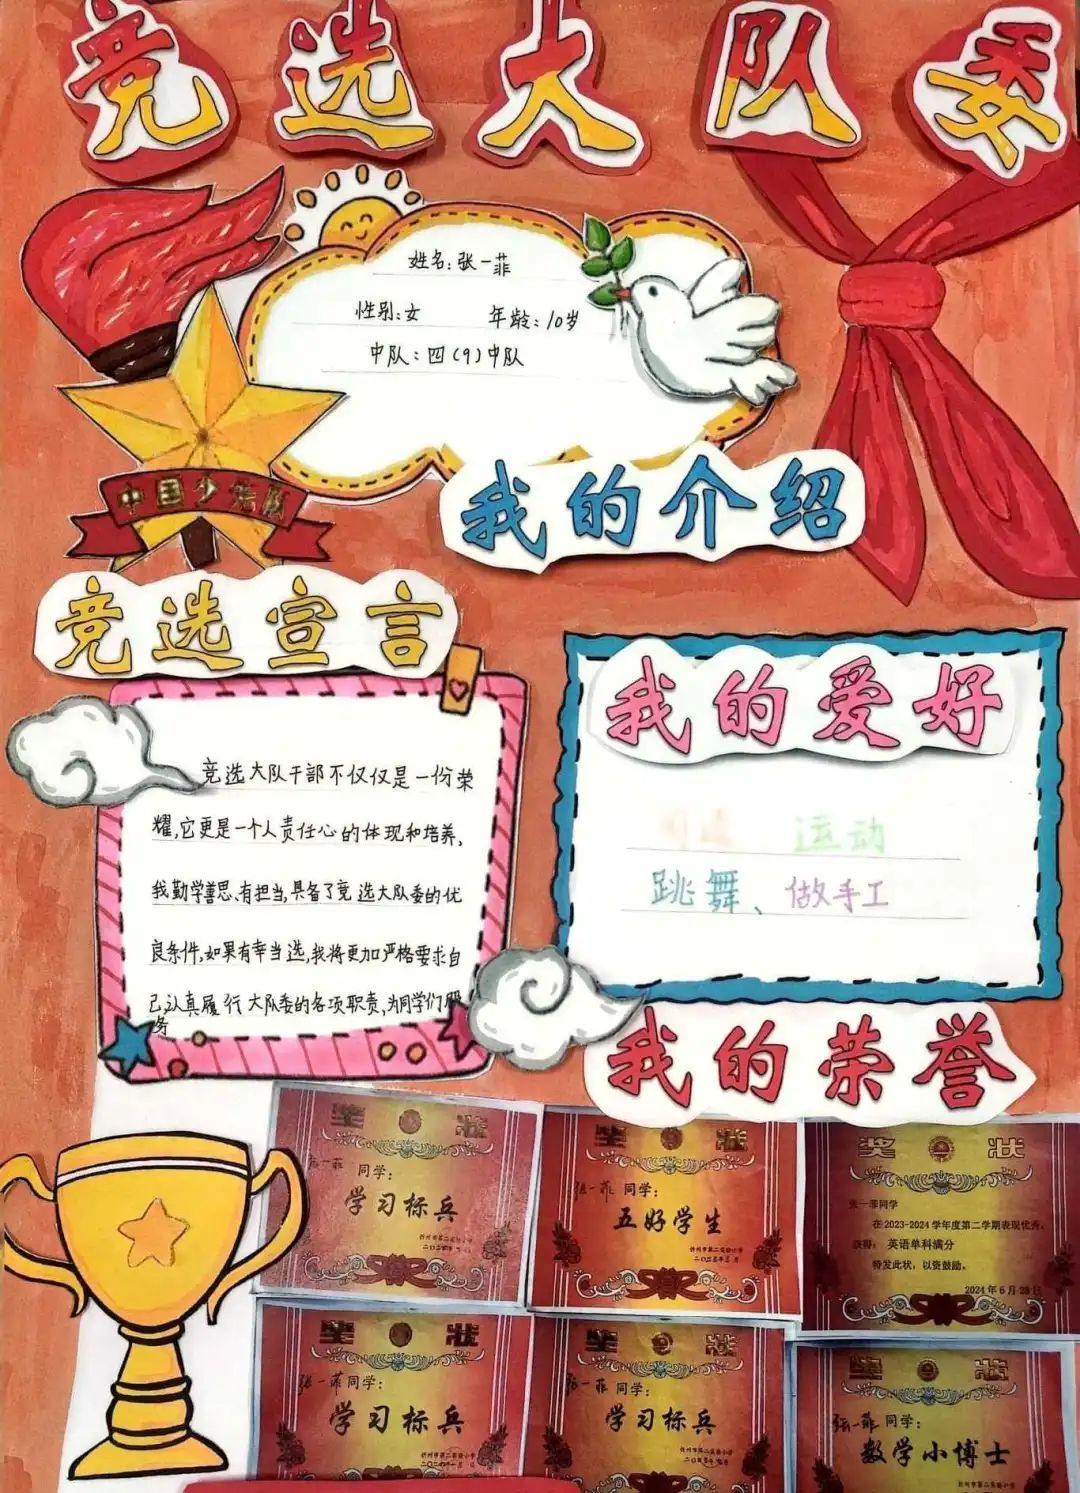 竞选大队委
姓名:张一菲
性别:女 年龄:10岁
中队:四(9)中队
中国少先队
我的介绍
竞选宣言
竞选大队干部不仅仅是一份荣
耀,它更是一个人责任心的体现和培养,
我勤学善思、有担当,具备了竞选大队委的优
良条件,如果有幸当选,我将更加严格要求自
己,认真履行大队委的各项职责,为同学们服
务
我的爱好
运动
跳舞、做手工
我的荣誉
奖状
张一菲 同学:
学习标兵
忻州市第二实验小学
奖状
张一菲 同学:
五好学生
忻州市第二实验小学
奖状
张一菲同学
在2023-2024学年度第二学期表现优秀,
获得: 英语单科满分
特发此状,以资鼓励。
2024年6月28日
奖状
张一菲 同学:
学习标兵
忻州市第二实验小学
奖状
张一菲 同学:
学习标兵
忻州市第二实验小学
奖状
张一菲 同学:
数学小博士
忻州市第二实验小学